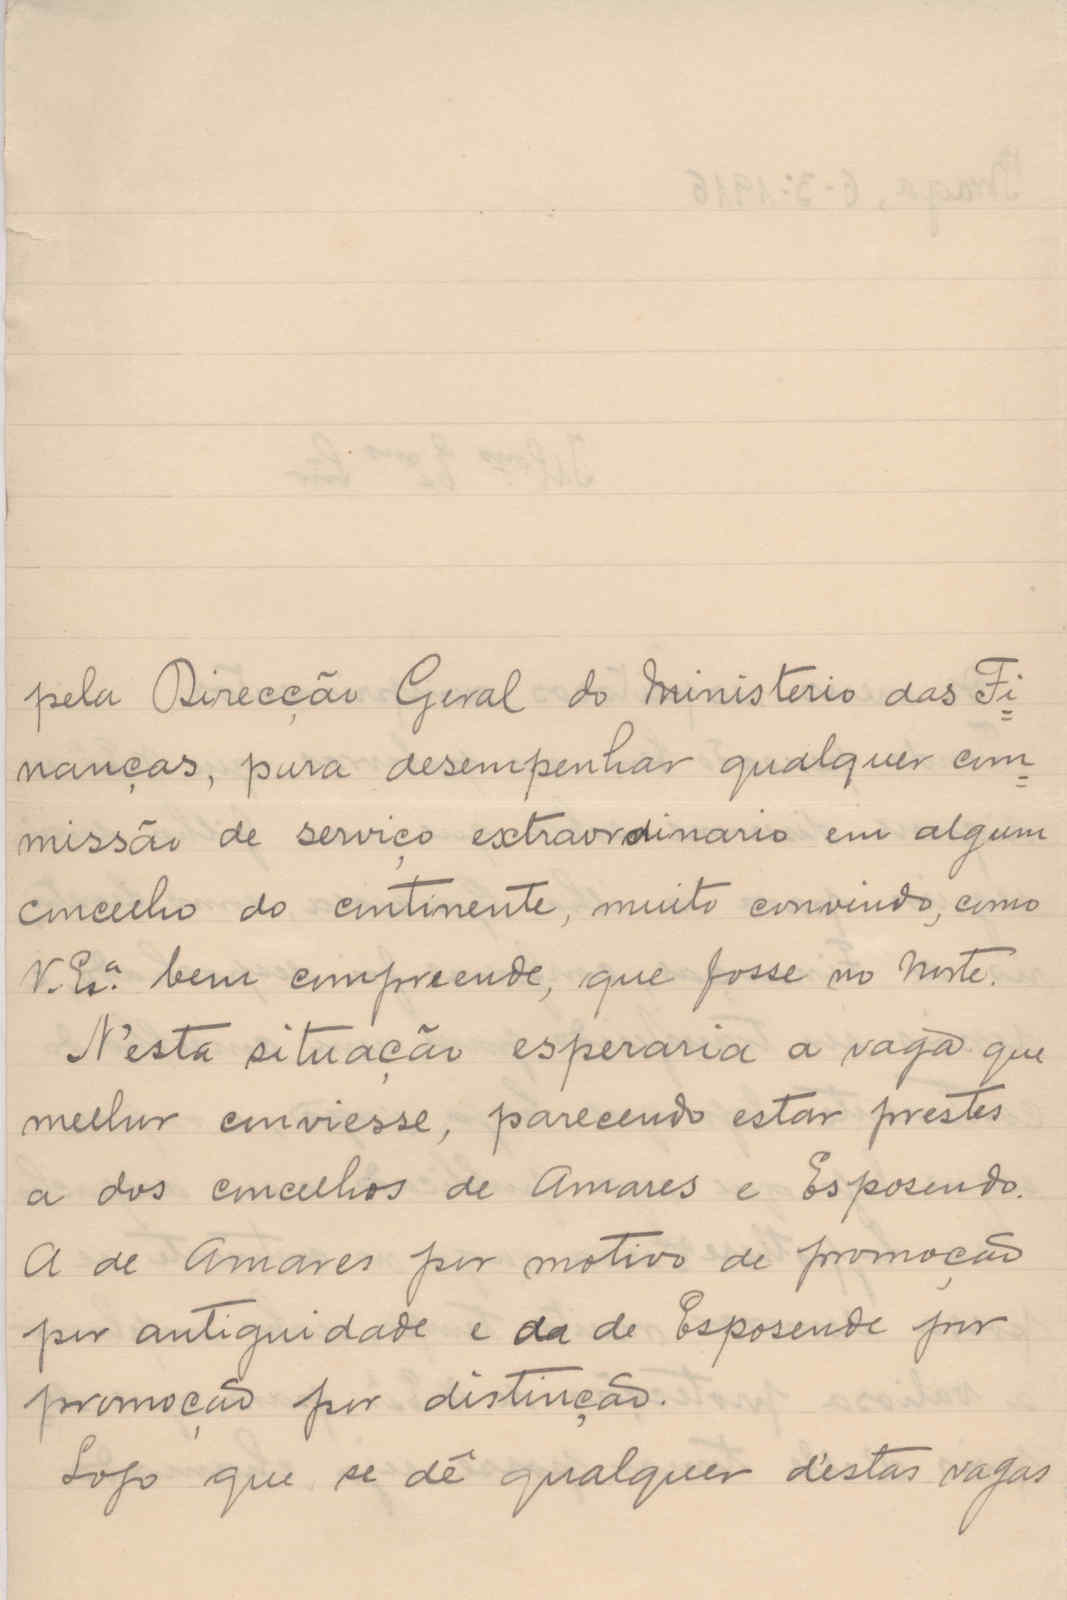 pela Direcção Geral do Ministerio das Fi=
nanças, para desempenhar qualquer com=
missão de serviço extraordinario em algum
concelho do continente, muito convindo, como
V. Ex.ª bem compreende, que fosse no Norte.
N'esta situação esperaria a vaga que
melhor conviesse, parecendo estar prestes
a dos concelhos de Amares e Esposendo.
A de Amares por motivo de promoção
por antiguidade e da de Esposende por
promoção por distincção.
Logo que se dê qualquer d'estas vagas